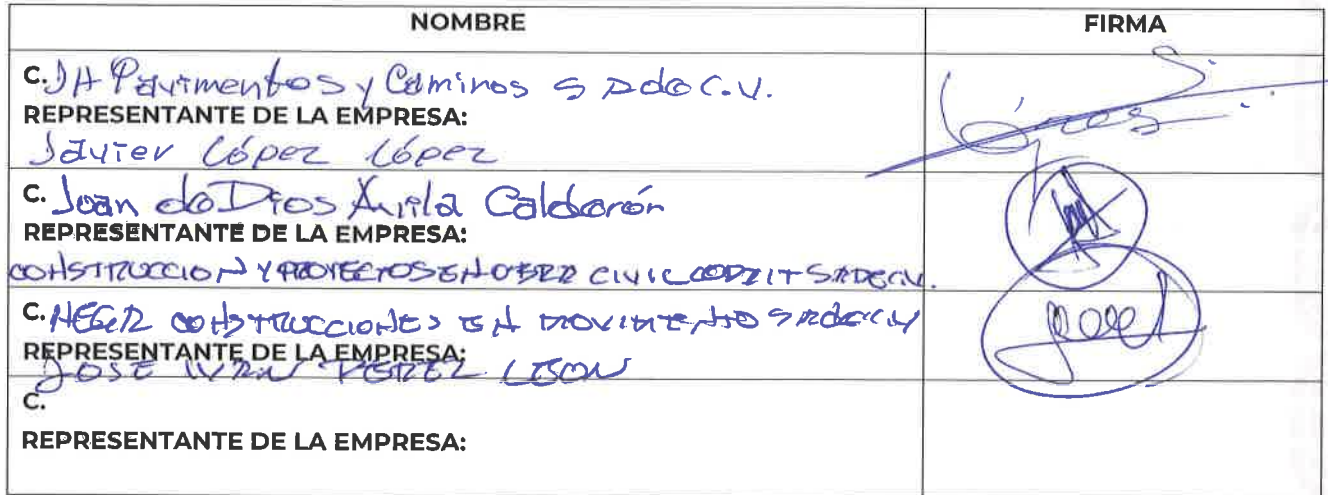 NOMBRE
FIRMA
C. JH Pavimentos y Caminos S A de C.V.
REPRESENTANTE DE LA EMPRESA:
Javier López López
C. Joan de Dios Ávila Calderón
REPRESENTANTE DE LA EMPRESA:
CONSTRUCCION Y PROYECTOS EN OBRA CIVIL SA DE CV.
C. CONSTRUCCIONES EN MOVIMIENTO SA DE CV
REPRESENTANTE DE LA EMPRESA:
JOSE IVAN PEREZ
C.
REPRESENTANTE DE LA EMPRESA: